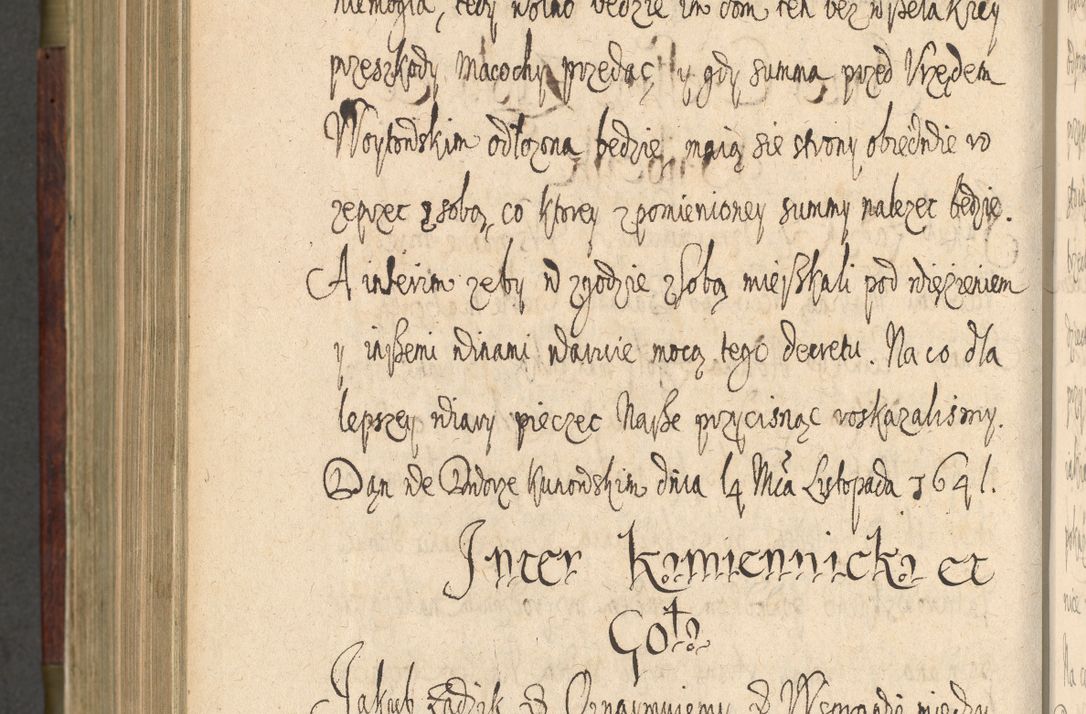 niemogła, tedy wolno bedzie im dom ten bez wßelakiey
przeszkody Macochy przedać, y gdy summa przed Vrzędem
Woytowskim odłozona bedzie, maią sie strony obiedwie ro
zeprzec z sobą, co ktorey z pomienioney summy nalezec bedzie.
A interim zeby w zgodzie z sobą mieszkali pod więzieniem
y inßemi winami naruie mocą tego decretu. Na co dla
lepszey wiary pieczęc Naße przycisnąc roskazalismy.
Dan we Dworze Kunowskim dnia 14 Mca Listopada 1641.
Inter Kamiennicką et
Gotą
Jakub Zadzik Oznaymuiemy Wsprawie między